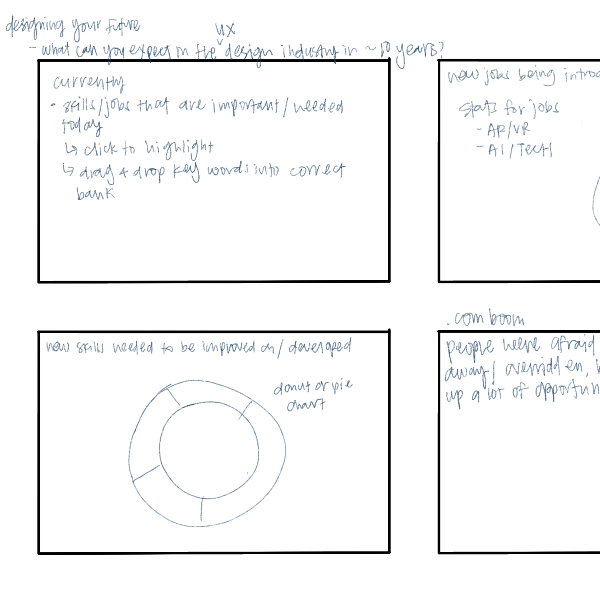 designing your future
UX
- what can you expect in the design industry in ~10 years?
currently
- skills/jobs that are important/needed
today
↳ click to highlight
↳ drag + drop key words into correct
bank
new jobs being introd
stats for jobs
- AR/VR
- AI/TECH
new skills needed to be improved on/developed
donut or pie
chart
.com boom
people were afraid
away/overridden,
up a lot of opportun